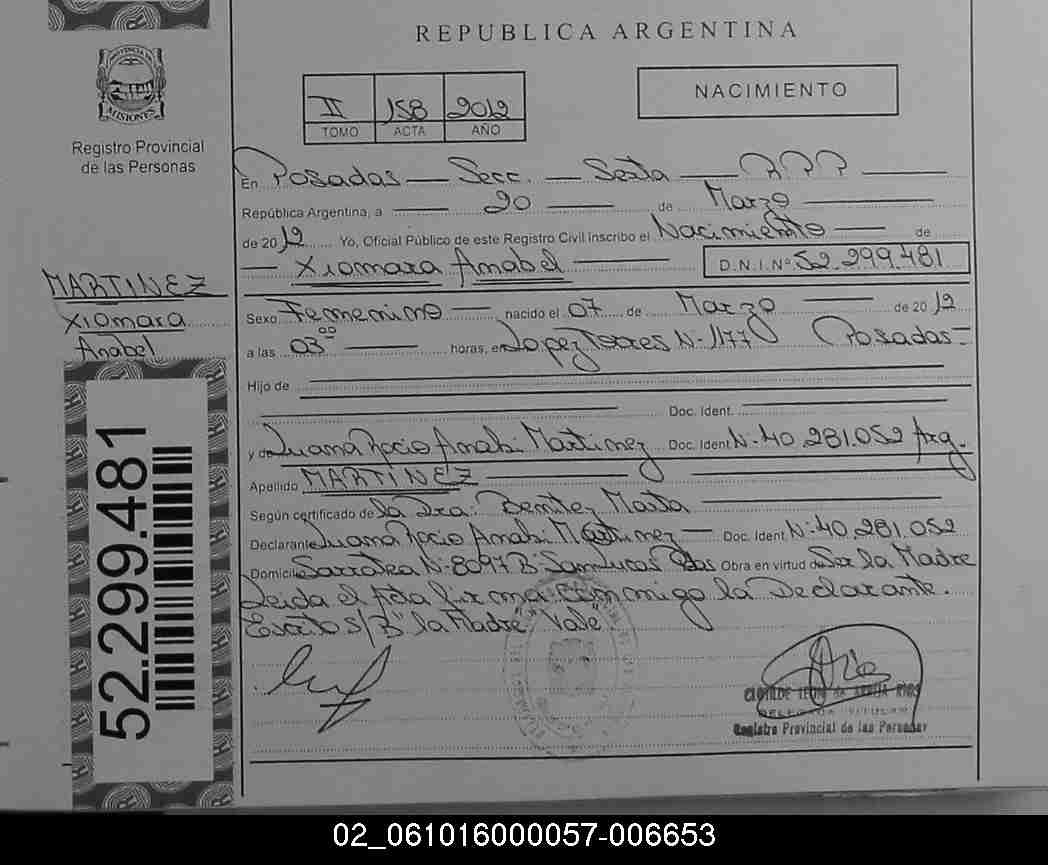 REPUBLICA ARGENTINA
PROVINCIA DE
MISIONES
Registro Provincial
de las Personas
II 158 2012
TOMO ACTA AÑO
NACIMIENTO
En Posadas — Secc. — Sexta —
República Argentina, a — 20 — de Marzo
de 2012 Yo, Oficial Público de este Registro Civil inscribo el Nacimiento — de
— Xiomara Anabel — D.N.I.Nº 52.299.481
MARTINEZ
Xiomara
Anabel
Sexo Femenino — nacido el 07 de Marzo — de 2012
a las 03 00 — horas, en Lopez Torres N-1177 Posadas-
Hijo de
Doc. Ident.
y de Juana Rocio Anahi Martinez Doc. Ident N-40.281.052 Arg.
Apellido MARTINEZ
Según certificado de la Dra: Benitez Marta
Declarante Juana Rocio Anahi Martinez — Doc. Ident. N-40.281.052
Domicilio N-8097 Obra en virtud de Ser la Madre
Leida el firma conmigo la Declarante.
S/B "la Madre" Vale"
52.299.481
CLOTILDE
DELEGADA TITULAR
Registro Provincial de las Personas
02_061016000057-006653